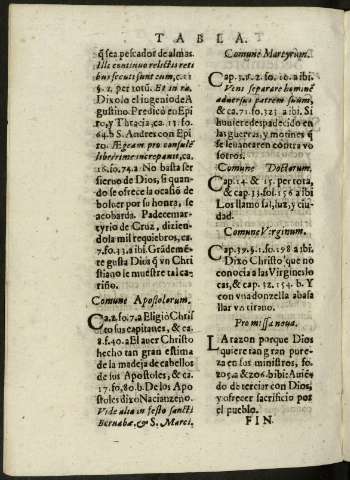 TABLA.
q̃ sea pescador de almas.
Illic continuo relictis reti
bus secuti sunt eum, c.21
§.2. per totũ. Et in ra.
Dixolo el ingenio de A
gustino. Predicò en Epi
to, y Thracia, ca.15.fo.
64.b S. Andres con Epi
to. Ægeam pro consulẽ
liberrime increpauit, ca.
16.fo.74.a No basta ser
sieruo de Dios, si quan-
do se ofrece la ocasiõ de
boluer por su honra, se
acobarda. Padece mar-
tyrio de Cruz, dizien-
dola mil requiebros, ca.
7.fo.33.a ibi. Grãdemẽ-
te gusta Dios q̃ vn Chri
stiano le muestre tal ca-
riño.
Comune Apostolorum.
Ca.2.fo.7.a Eligiò Chris
to sus capitanes, & ca.
8.f.40.a El auer Christo
hecho tan gran estima
de la madeja de cabellos
de sus Apostoles, & ca.
17.fo,80.b. De los Apo
stoles dixo Nacianzeno.
Vide alia in festo sancti
Bernabæ, & S. Marci.
Comune Martyrum.
Cap.3.§.2. fo. 10.a ibi.
Veni separare hominẽ
aduersus patrem suum,
& ca.71.fo.323 a ibi. Si
houiere despadecido en
las guerras, y motines q̃
se leuantaren contra vo
sotros.
Comune Doctorum.
Cap.14. & 15. per tota,
& cap.33.fol.156 a ibi
Los llamo sal, luz, y ciu-
dad.
Comune Virginum.
Cap.39.§.1.fo.178 a ibi.
Dixo Christo que no
conocia a las Virgines lo
cas, & cap.32.154.b. Y
con vna donzella abasa
llar vn tirano.
Pro missa noua.
La razon porque Dios
quiere tan gran pure-
za en sus ministros, fo.
205.a & 206.b ibi: Auiẽ-
do de terciar con Dios,
y ofrecer sacrificio por
el pueblo.
FIN.